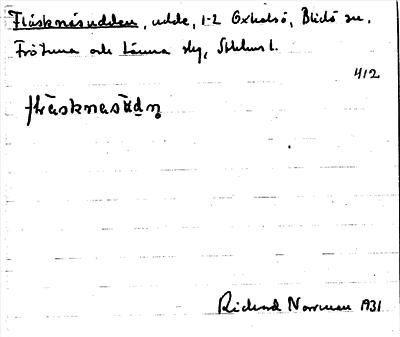 Fläsknäsudden, udde, 1-2 Oxhalsö, Blidö sn,
Frötuna och Länna slg, Sthlms l.
412
fläsknasùdn̥
Rickard Norrman 1931